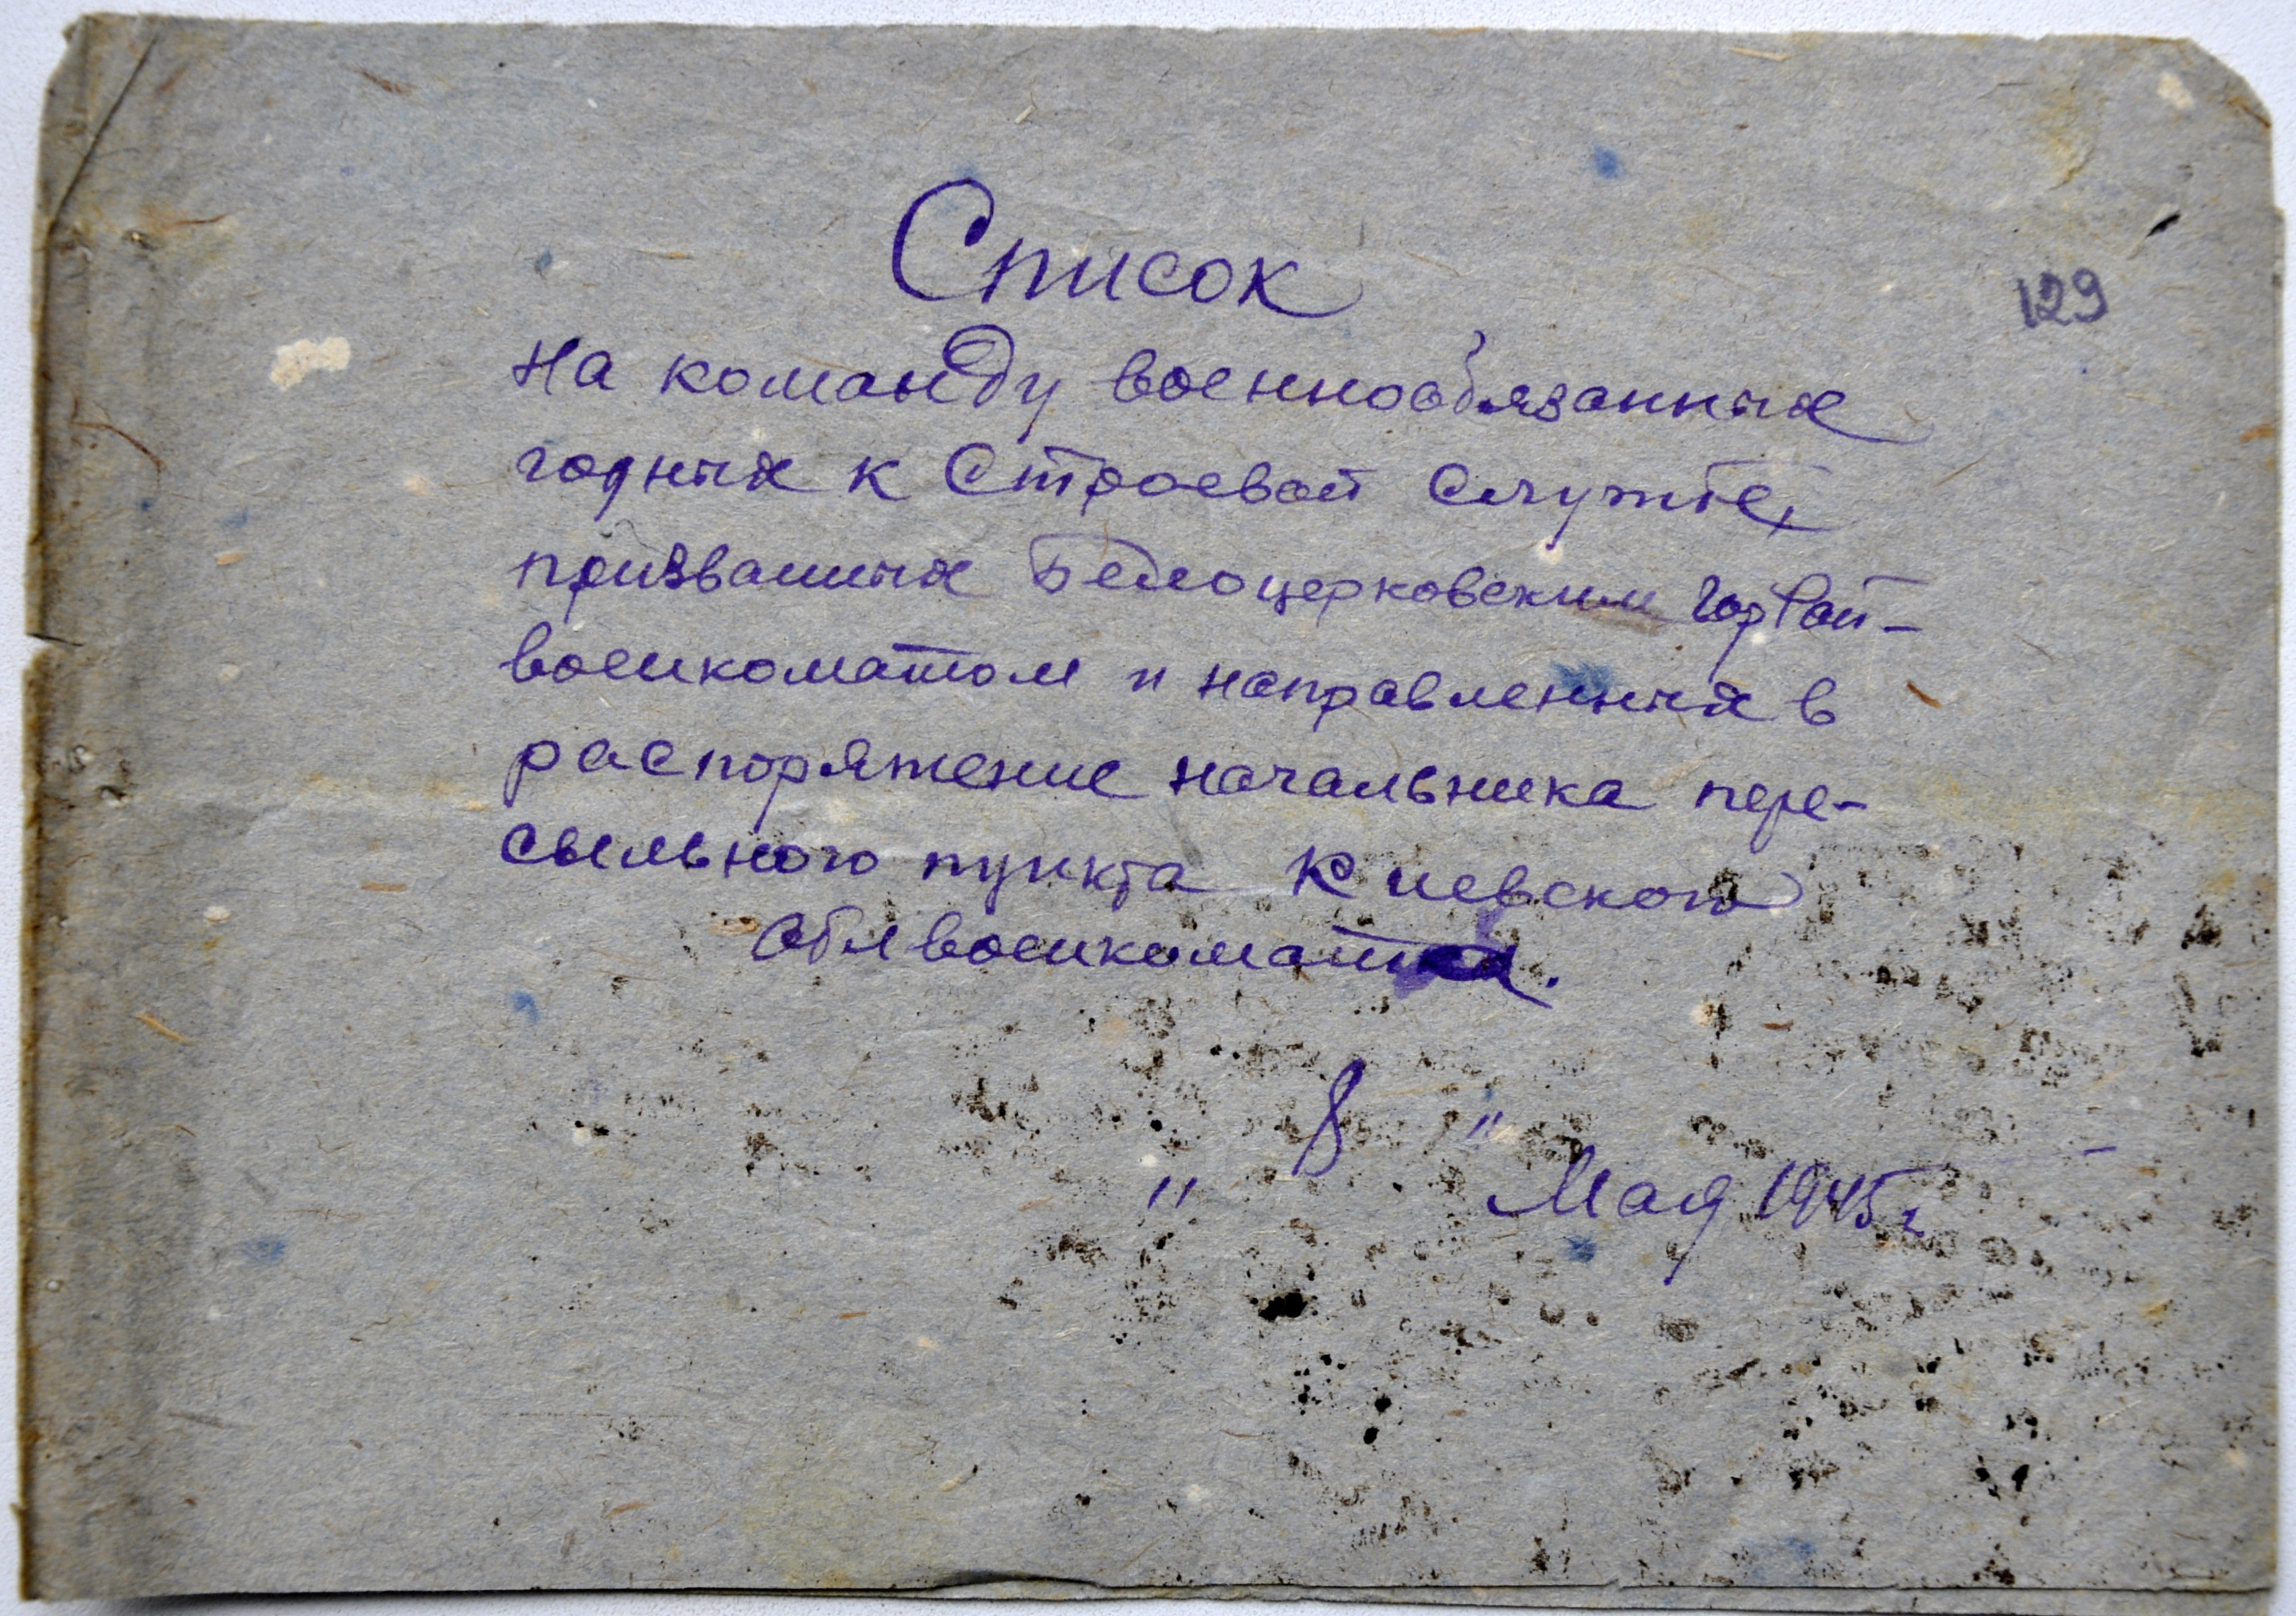 Список
129
на команду военнообязанных
годных к Строевой Службе,
призванных Белоцерковским горРай-
военкоматом и направленных в
распоряжение начальника пере-
сыльного пункта Киевского
Облвоенкомата.
" 8 " Мая 1945 г